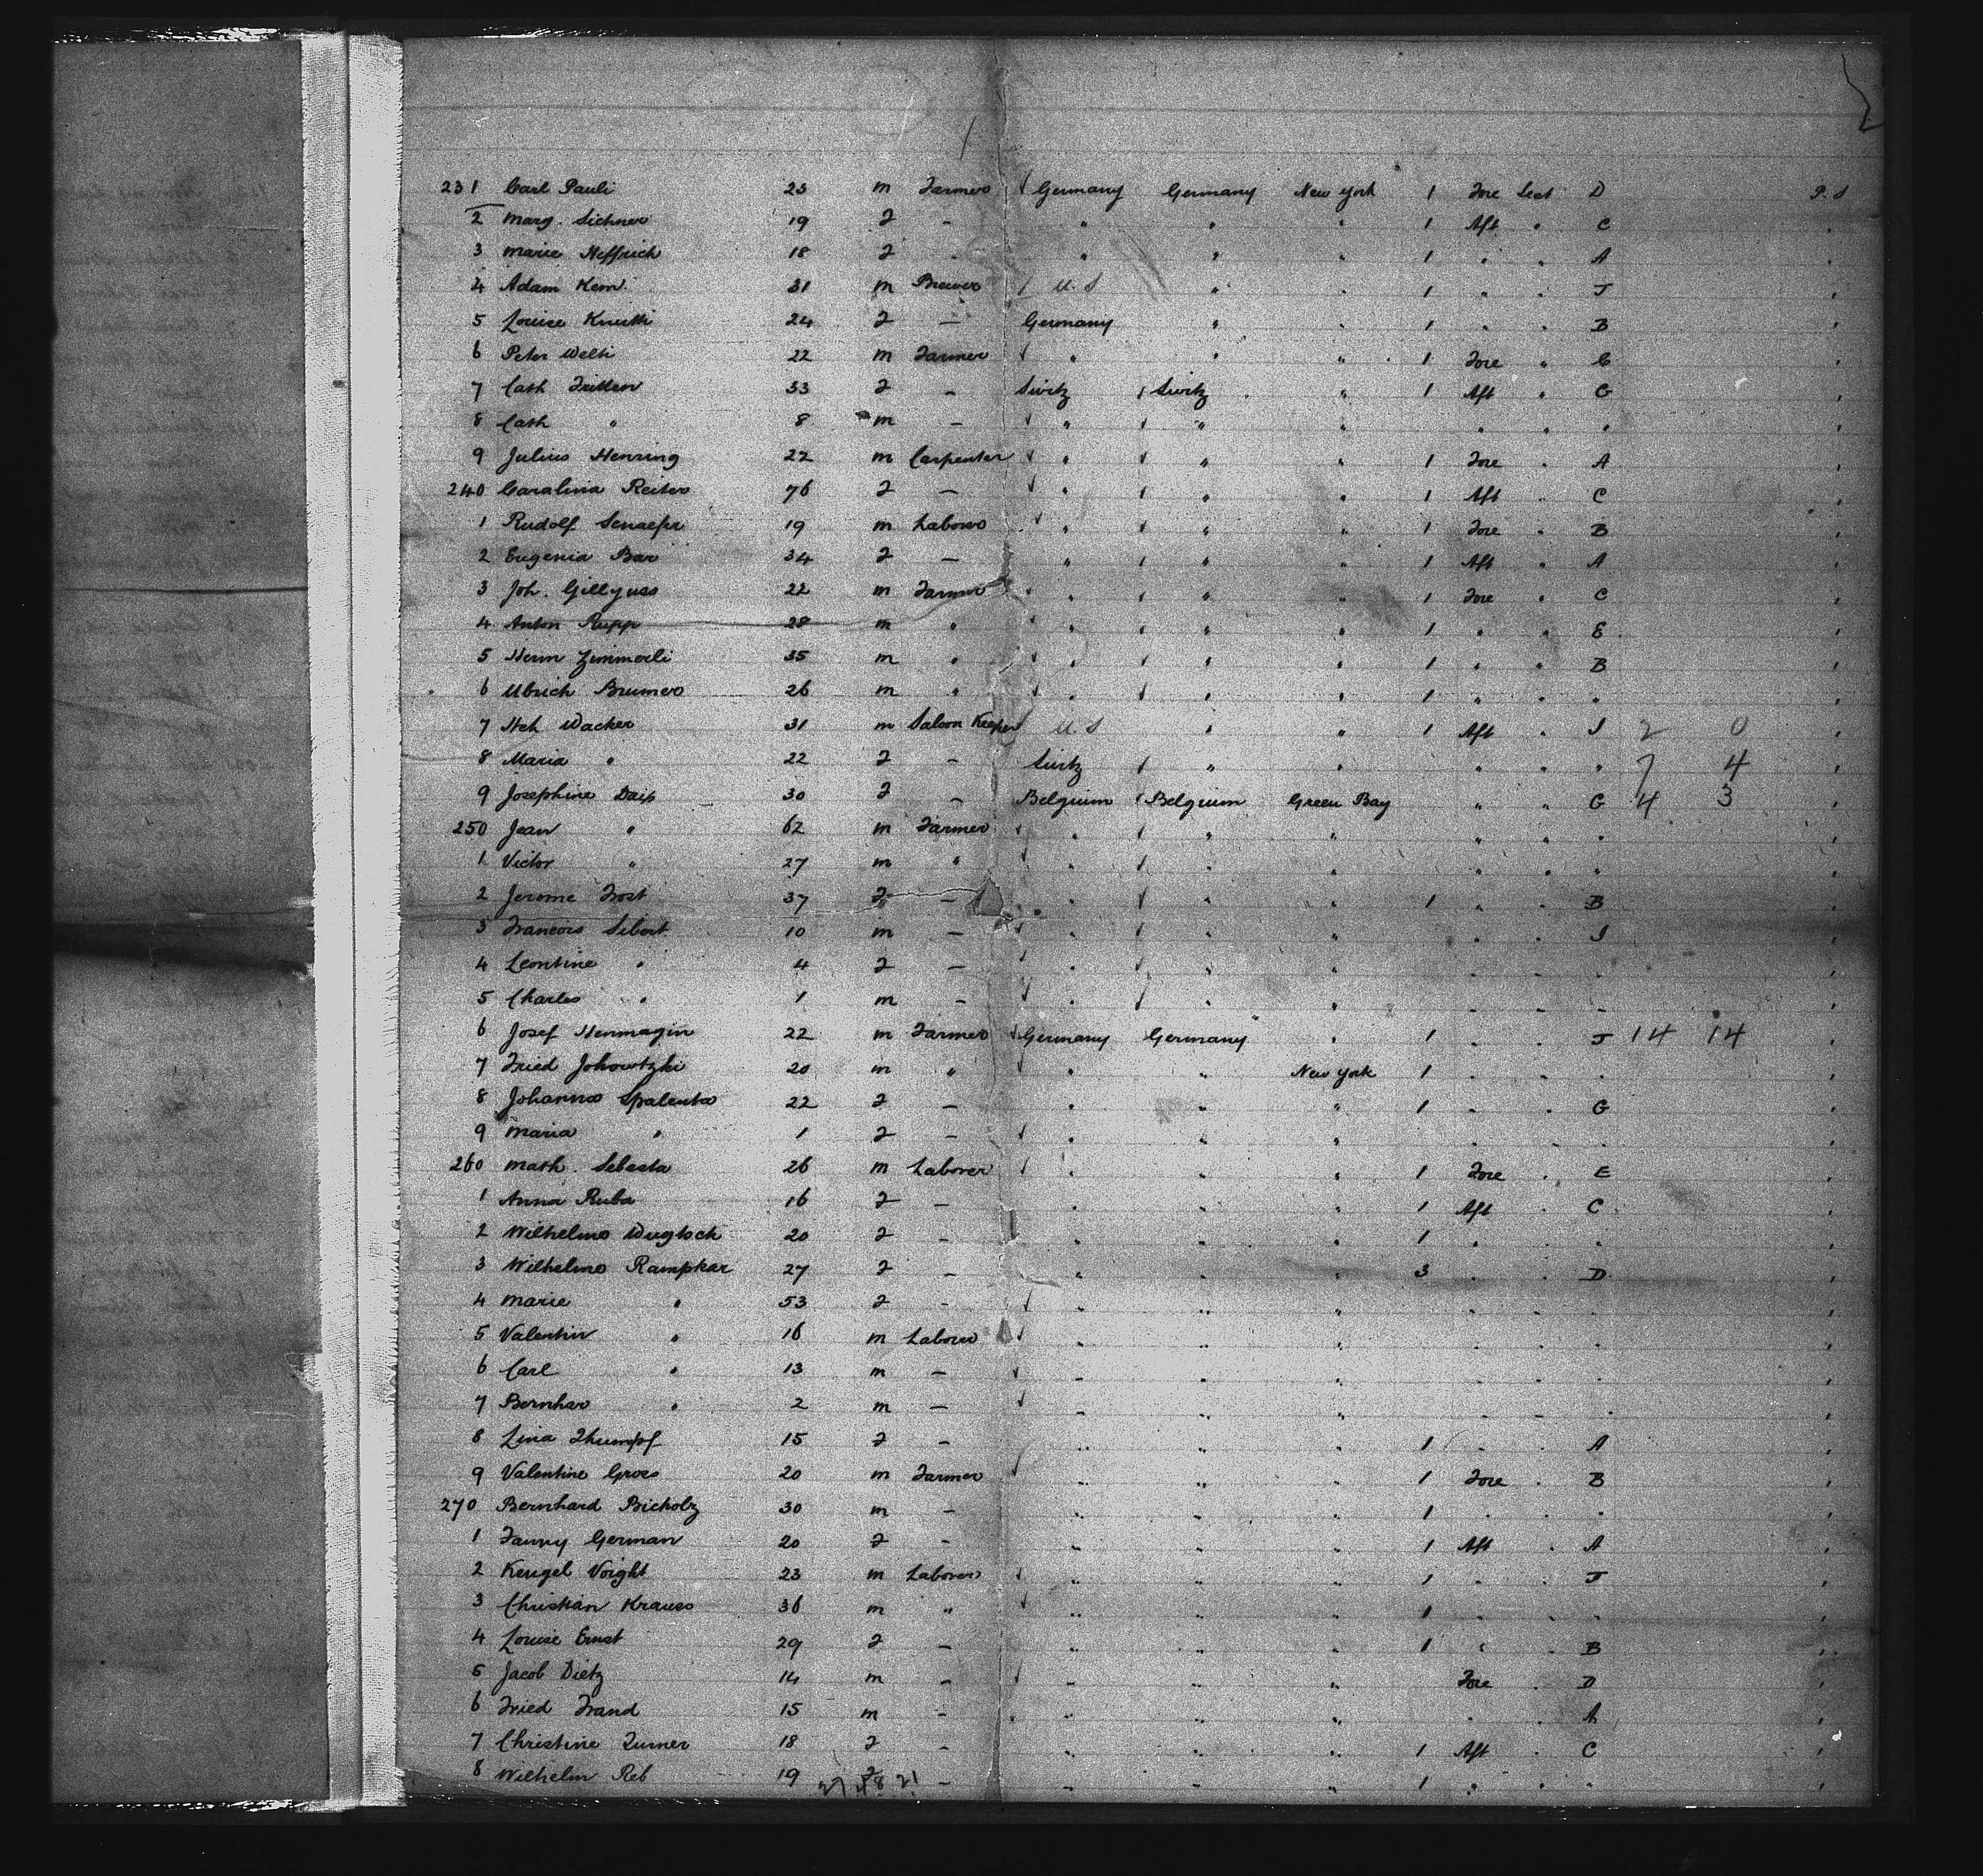 231 Carl Pauli 23 m Farmer √ Germany Germany New York 1 Fore Sect D P. S
2 Marg. Sichner 19 F - " " " 1 Aft " C
3 Marie Heffrich 18 F - " " " 1 " " A
4 Adam Kern 31 m Brewer / U. S " " 1 " " J
5 Louise Knutti 24 F - Germany " " 1 " " B
6 Peter Welti 22 m Farmer √ " " " 1 Fore " C
7 Cath Fritten 33 F - Switz √ Switz " 1 Aft " G
8 Cath " 8 m - √ " √ " " " " "
9 Julius Henring 22 m Carpenter √ " √ " " 1 Fore " A
240 Caralina Reiter 76 F - √ " √ " " 1 Aft " C
1 Rudolf 19 m Laborer √ " √ " " 1 Fore " B
2 Eugenia Bar 34 F - " √ " " 1 Aft " A
3 Joh. Gillyuss 22 m Farmer " √ " " 1 Fore " C
4 Anton Rupp 28 m " " √ " " 1 " " E
5 Herm Zimmerli 35 m " √ " √ " " 1 " " B
6 Ulrich Brumer 26 m " √ " √ " " 1 " " "
7 Hch Wacker 31 m Saloon Keeper / U. S " " 1 Aft " J 2 0
8 Maria " 22 F - Switz √ " " " " " 7 4
9 Josephine Daix 30 F - Belgium √ Belgium Green Bay " " G 4 3
250 Jean " 62 m Farmer √ " √ " " " " "
1 Victor " 27 m " √ " √ " " " "
2 Jerome Frost 37 F - " √ " " 1 " " B
3 Francois Sibert 10 m - √ " √ " " " " J
4 Leontine " 4 F - √ " √ " " " " "
5 Charles " 1 m - √ " √ " " " " "
6 Josef Henmagin 22 m Farmer √ Germany Germany " 1 " " J 14 14
7 Fried Johowtzki 20 m " √ " " New York 1 " " "
8 Johanna Spalenka 22 F - " " " 1 " " G
9 Maria " 1 F - √ " " " " " "
260 Math. Sebesta 26 m Laborer √ " " " 1 Fore " E
1 Anna Ruba 16 F - " " " 1 Aft " C
2 Wilhelmo Wugtoch 20 F - " " " 1 " " "
3 Wilhelmo Rampkar 27 F - " " " 3 " " D
4 Marie " 53 F - √ " " " " " "
5 Valentin " 16 m Laborer √ " " " " " "
6 Carl " 13 m - √ " " " " " "
7 Bernhar " 2 m - √ " " " " " "
8 Lina Thumpf 15 F - " " " 1 " " A
9 Valentine Gross 20 m Farmer √ " " " 1 Fore " B
270 Bernhard Bicholz 30 m - " " " 1 " " "
1 Fanny German 20 F - " " " 1 Aft " A
2 Kengel Voight 23 m Laborer √ " " " 1 " " J
3 Christian Krauss 36 m " √ " " " 1 " " "
4 Louise Ernst 29 F - " " " 1 " " B
5 Jacob Dietz 14 m - √ " " " Fore " D
6 Fried Frand 15 m - " " " " " A
7 Christine Turner 18 F - " " " 1 Aft " C
8 Wilhelm Reb 19 F - " " " 1 " " "